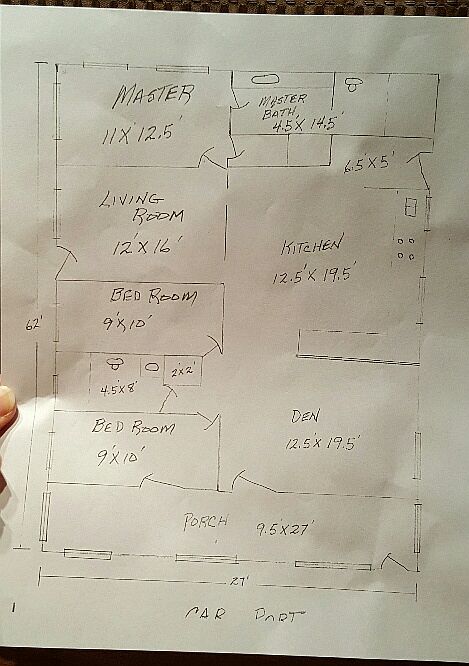 MASTER
11 X 12.5'
MASTER
BATH
4.5 X 14.5'
6.5' X 5'
LIVING
ROOM
12' X 16'
KITCHEN
12.5' X 19.5'
BED ROOM
9' X 10'
62'
4.5 X 8'
2' X 2'
BED ROOM
9' X 10'
DEN
12.5 X 19.5'
PORCH 9.5 X 27'
27'
CAR PORT
1